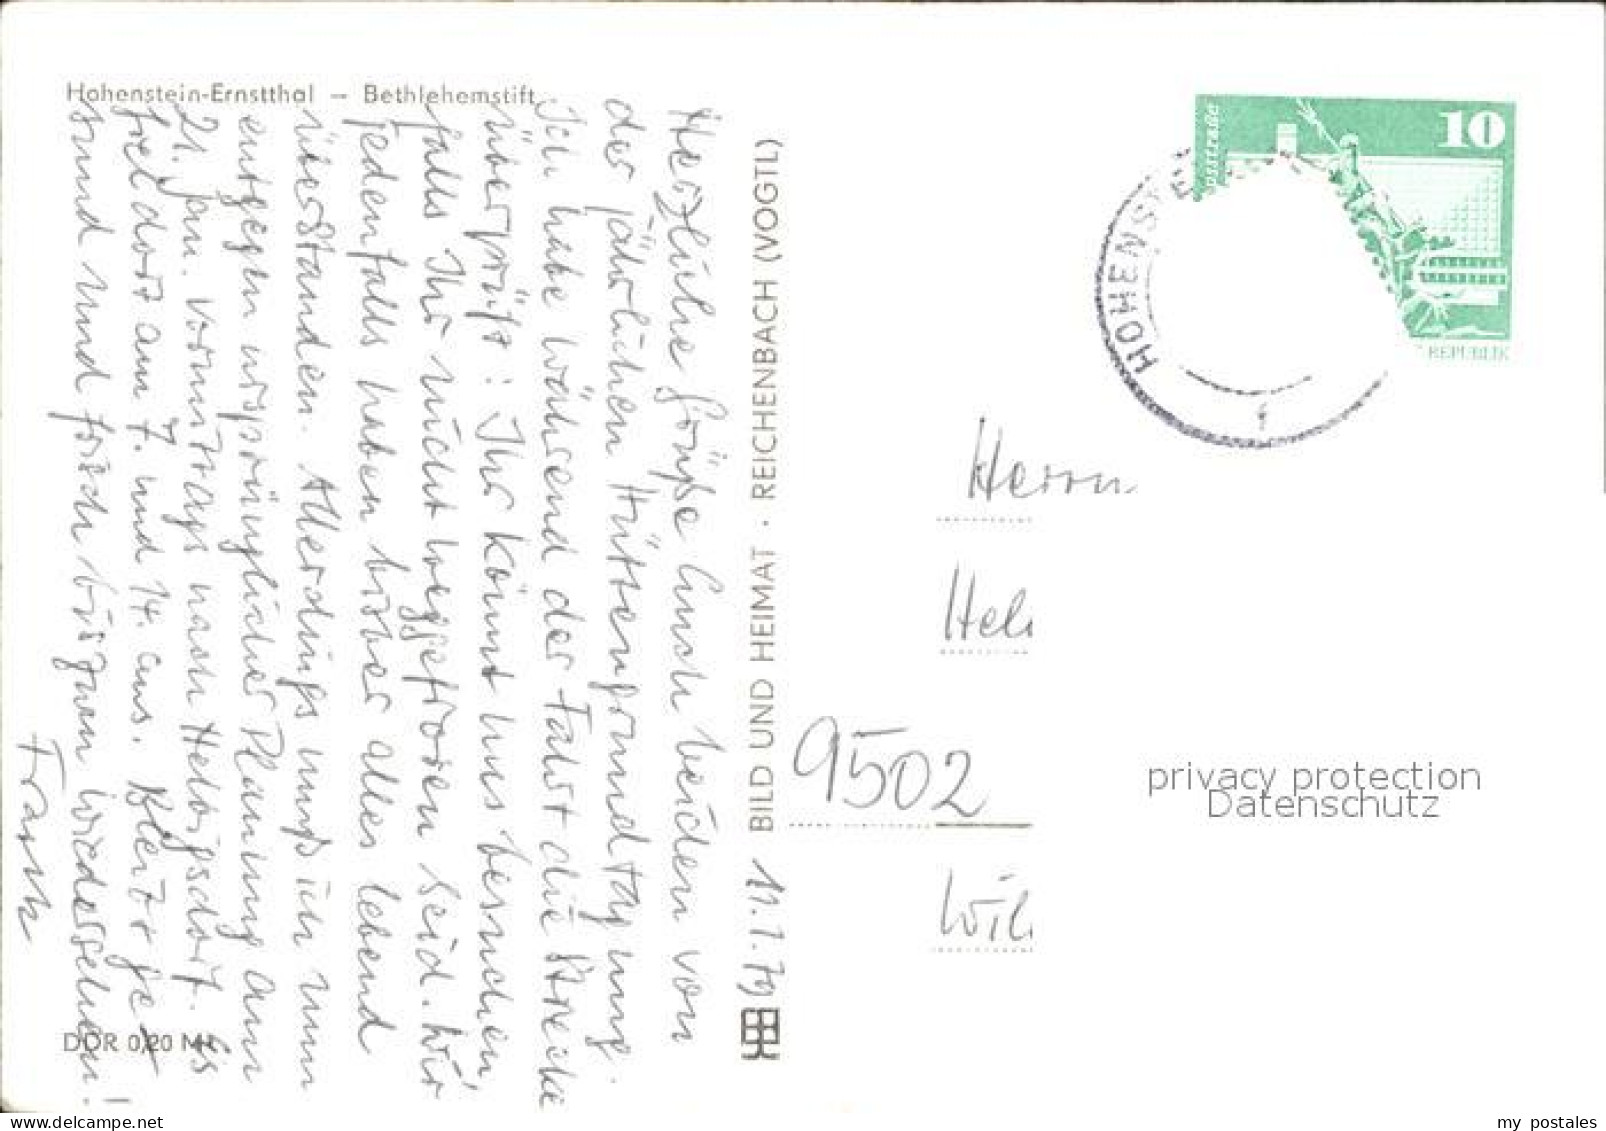 Hohenstein-Ernstthal – Bethlehemstift
Herzliche Grüße Euch beiden von
der jährlichen Hüttengrundtagung.
Ich habe während der Fahrt die Strecke
überprüft: Ihr könnt uns besuchen,
falls Ihr nicht weggefroren seid. Wir
jedenfalls haben bisher alles lebend
überstanden. Allerdings muß ich nun
entgegen ursprünglicher Planung am
21. Jan. vormittags nach Helbigsdorf. Es
fiel dort am 7. und 14. aus. Bleibt ge-
sund und frisch bis zum Wiedersehen!
Frank
DDR 0,20 M
BILD UND HEIMAT · REICHENBACH (VOGTL)
11.1.79
10
REPUBLIK
HOHENSTE
f
Herrn
Hel
9502
Wil
privacy protection
Datenschutz
my postales